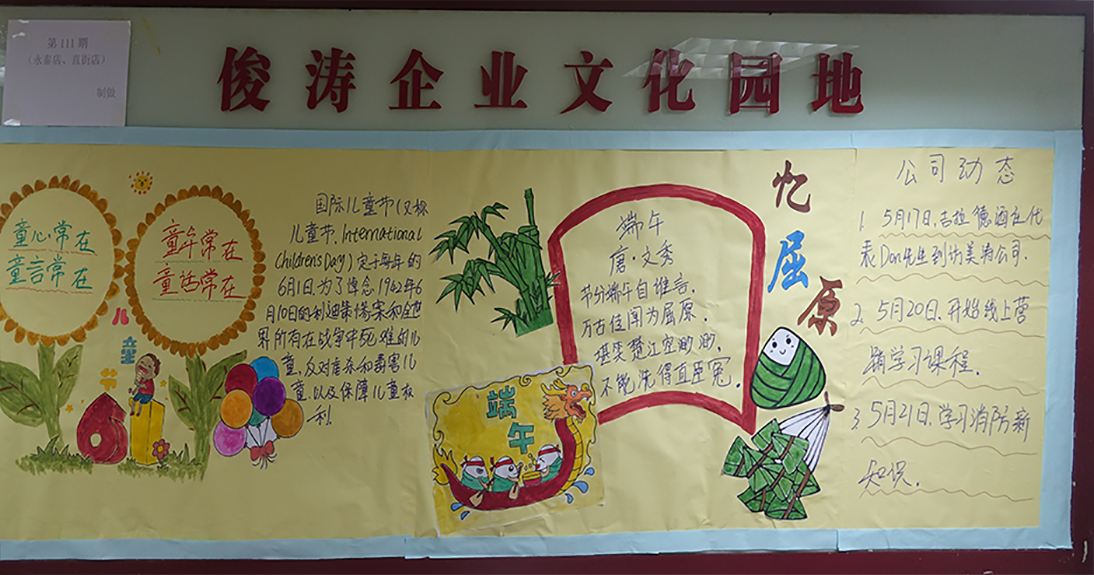 第111期
(永泰店、直街店)
制做
俊涛企业文化园地
童心常在
童言常在
童年常在
童话常在
儿
童
节
61
国际儿童节(又称
儿童节, International
Children's Day)定于每年的
6月1日。为了悼念1942年6
月10日的利迪策惨案和全世
界所有在战争中死难的儿
童,反对虐杀和毒害儿
童,以及保障儿童权
利.
端午
端午
唐·文秀
节分端午自谁言,
万古传闻为屈原,
堪笑楚江空渺渺,
不能洗得直臣冤.
忆
屈
原
公司动态
1. 5月17日,吉拉德酒庄代
表Dan先生到访美涛公司.
2. 5月20日,开始线上营
销学习课程.
3. 5月21日,学习消防新
知识.